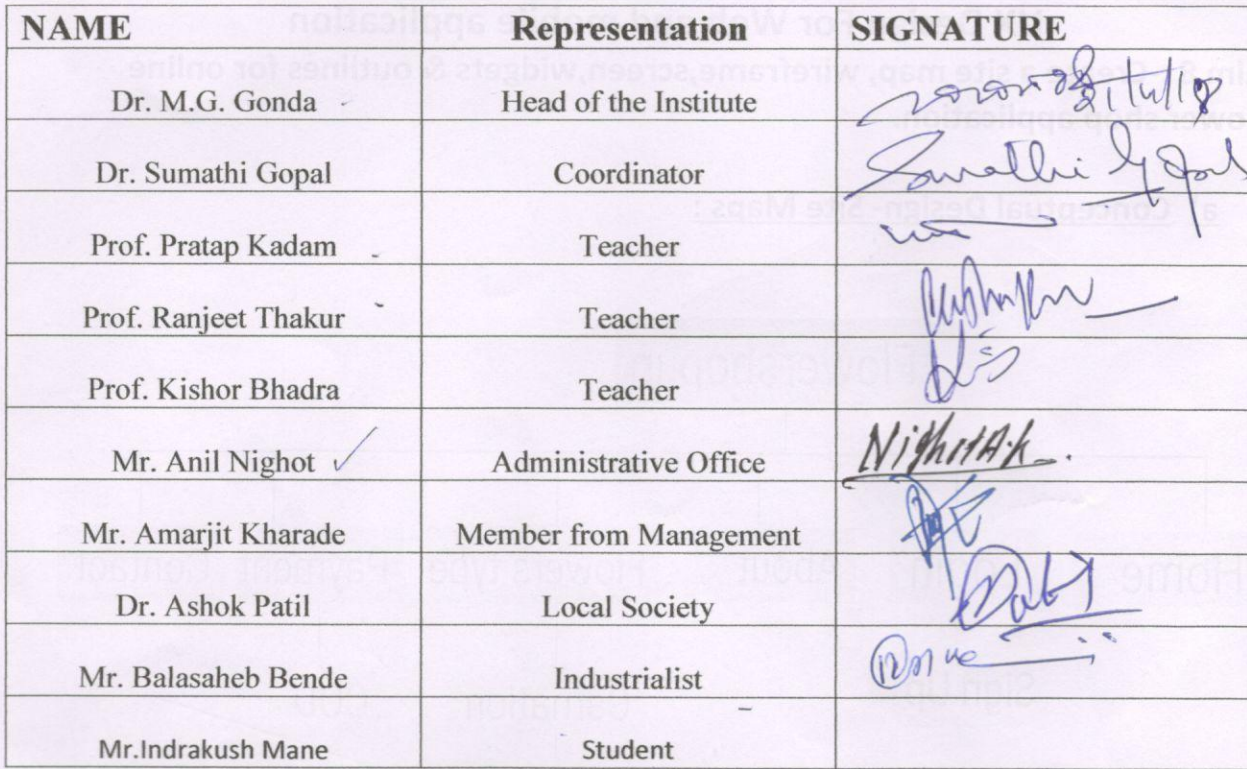 NAME Representation SIGNATURE
Dr. M.G. Gonda Head of the Institute
Dr. Sumathi Gopal Coordinator Sumathi Gopal
Prof. Pratap Kadam Teacher
Prof. Ranjeet Thakur Teacher
Prof. Kishor Bhadra Teacher
Mr. Anil Nighot Administrative Office Nighot A.K.
Mr. Amarjit Kharade Member from Management
Dr. Ashok Patil Local Society
Mr. Balasaheb Bende Industrialist
Mr.Indrakush Mane Student